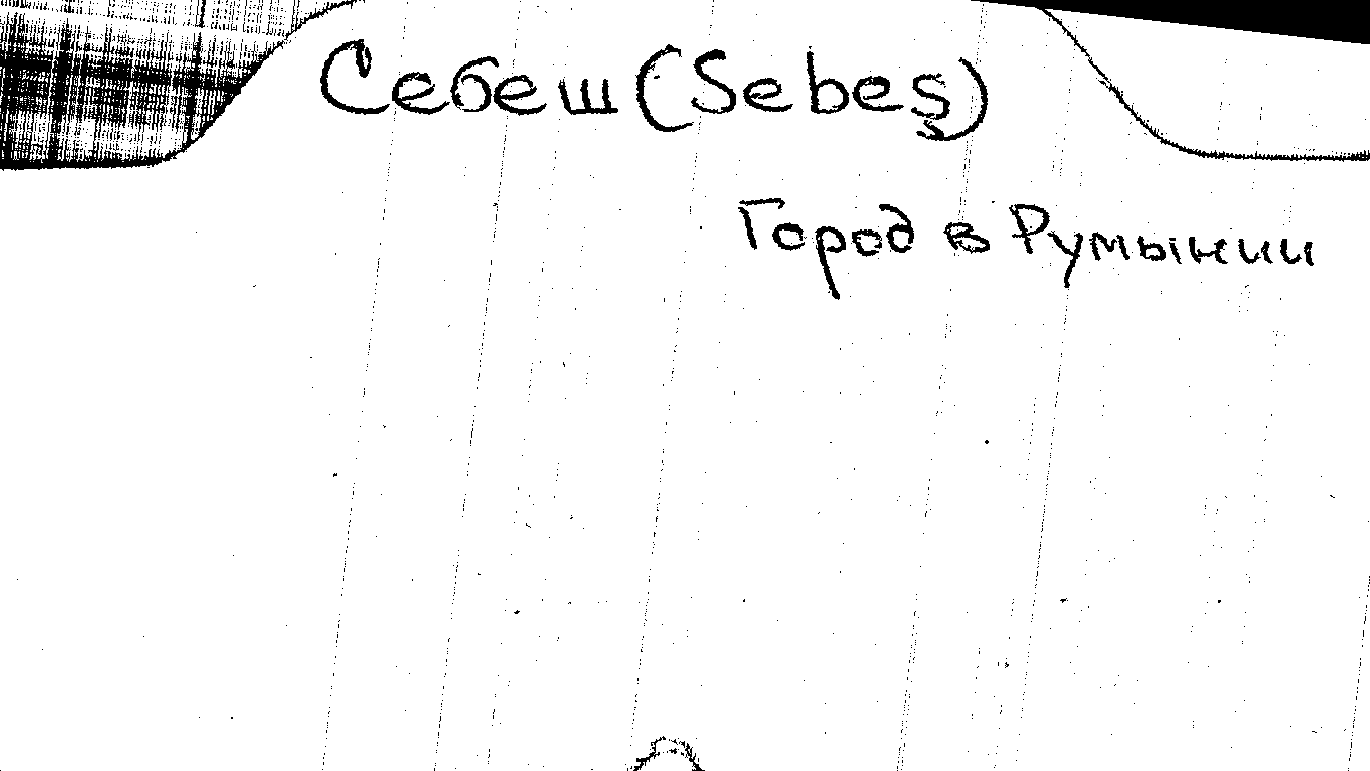 Себеш (Sebeş)
Город в Румынии